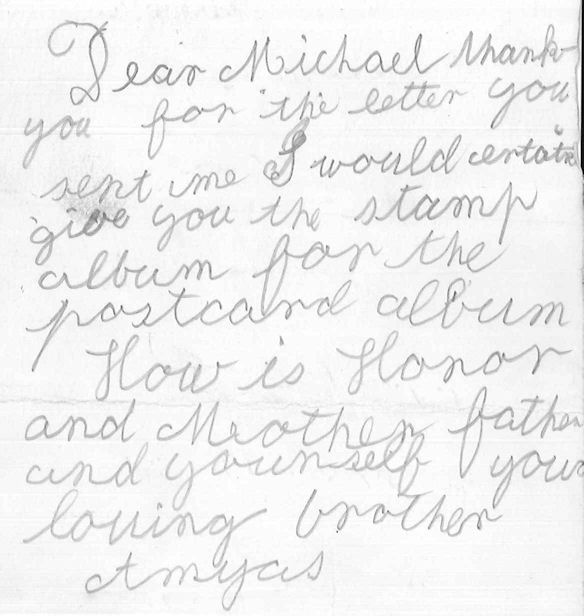 Dear Michael thank
you for the letter you
sent me I would
give you the stamp
album for the
postcard album
How is Honor
and Meother father
and yourself your
loving brother
Amyas